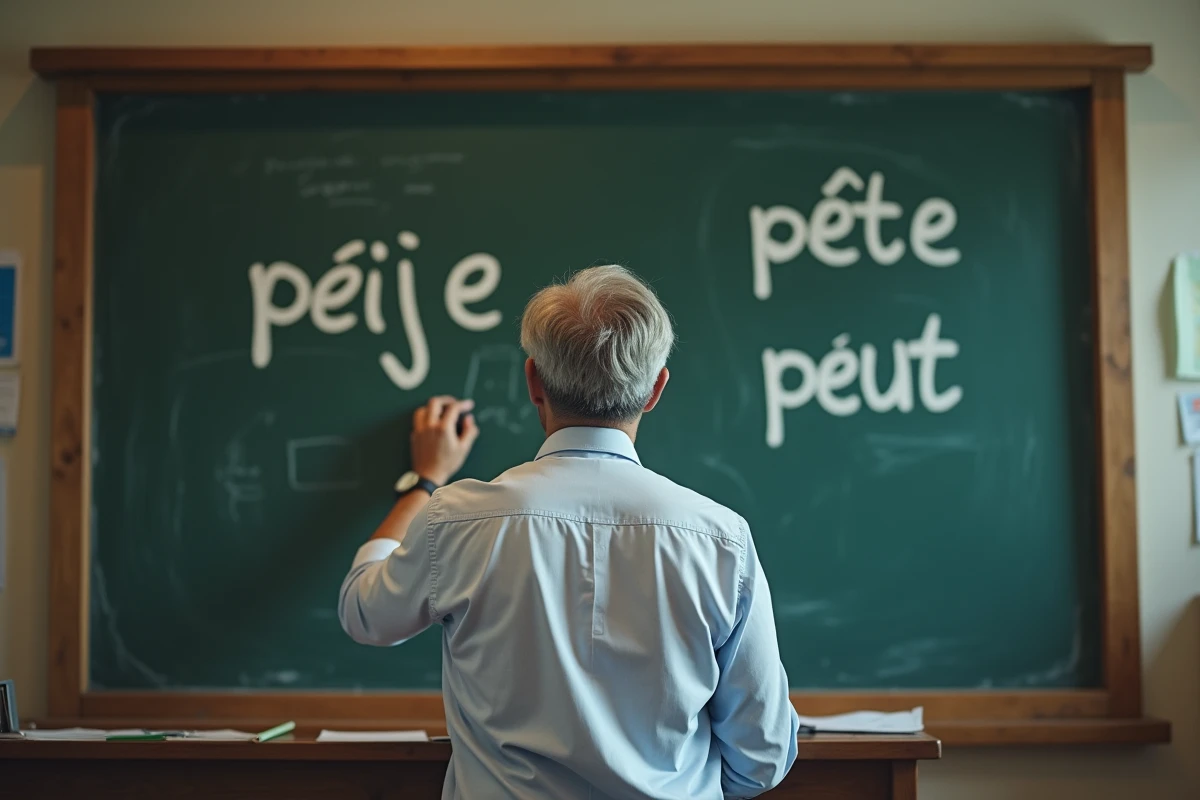 péij e
pête
péut